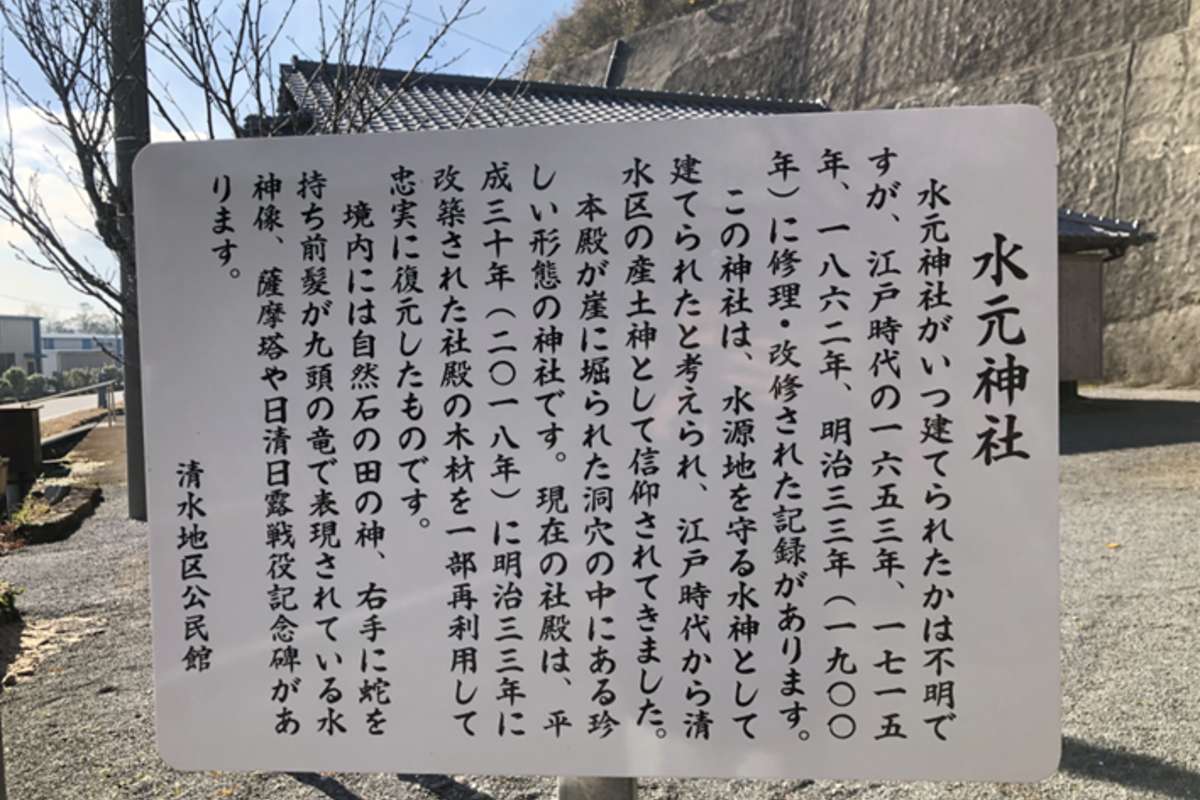 水元神社
水元神社がいつ建てられたかは不明で
すが、江戸時代の一六五三年、一七一五
年、一八六二年、明治三三年(一九〇〇
年)に修理・改修された記録があります。
この神社は、水源地を守る水神として
建てられたと考えられ、江戸時代から清
水区の産土神として信仰されてきました。
本殿が崖に堀られた洞穴の中にある珍
しい形態の神社です。現在の社殿は、平
成三十年(二〇一八年)に明治三三年に
改築された社殿の木材を一部再利用して
忠実に復元したものです。
境内には自然石の田の神、右手に蛇を
持ち前髪が九頭の竜で表現されている水
神像、薩摩塔や日清日露戦役記念碑があ
ります。
清水地区公民館